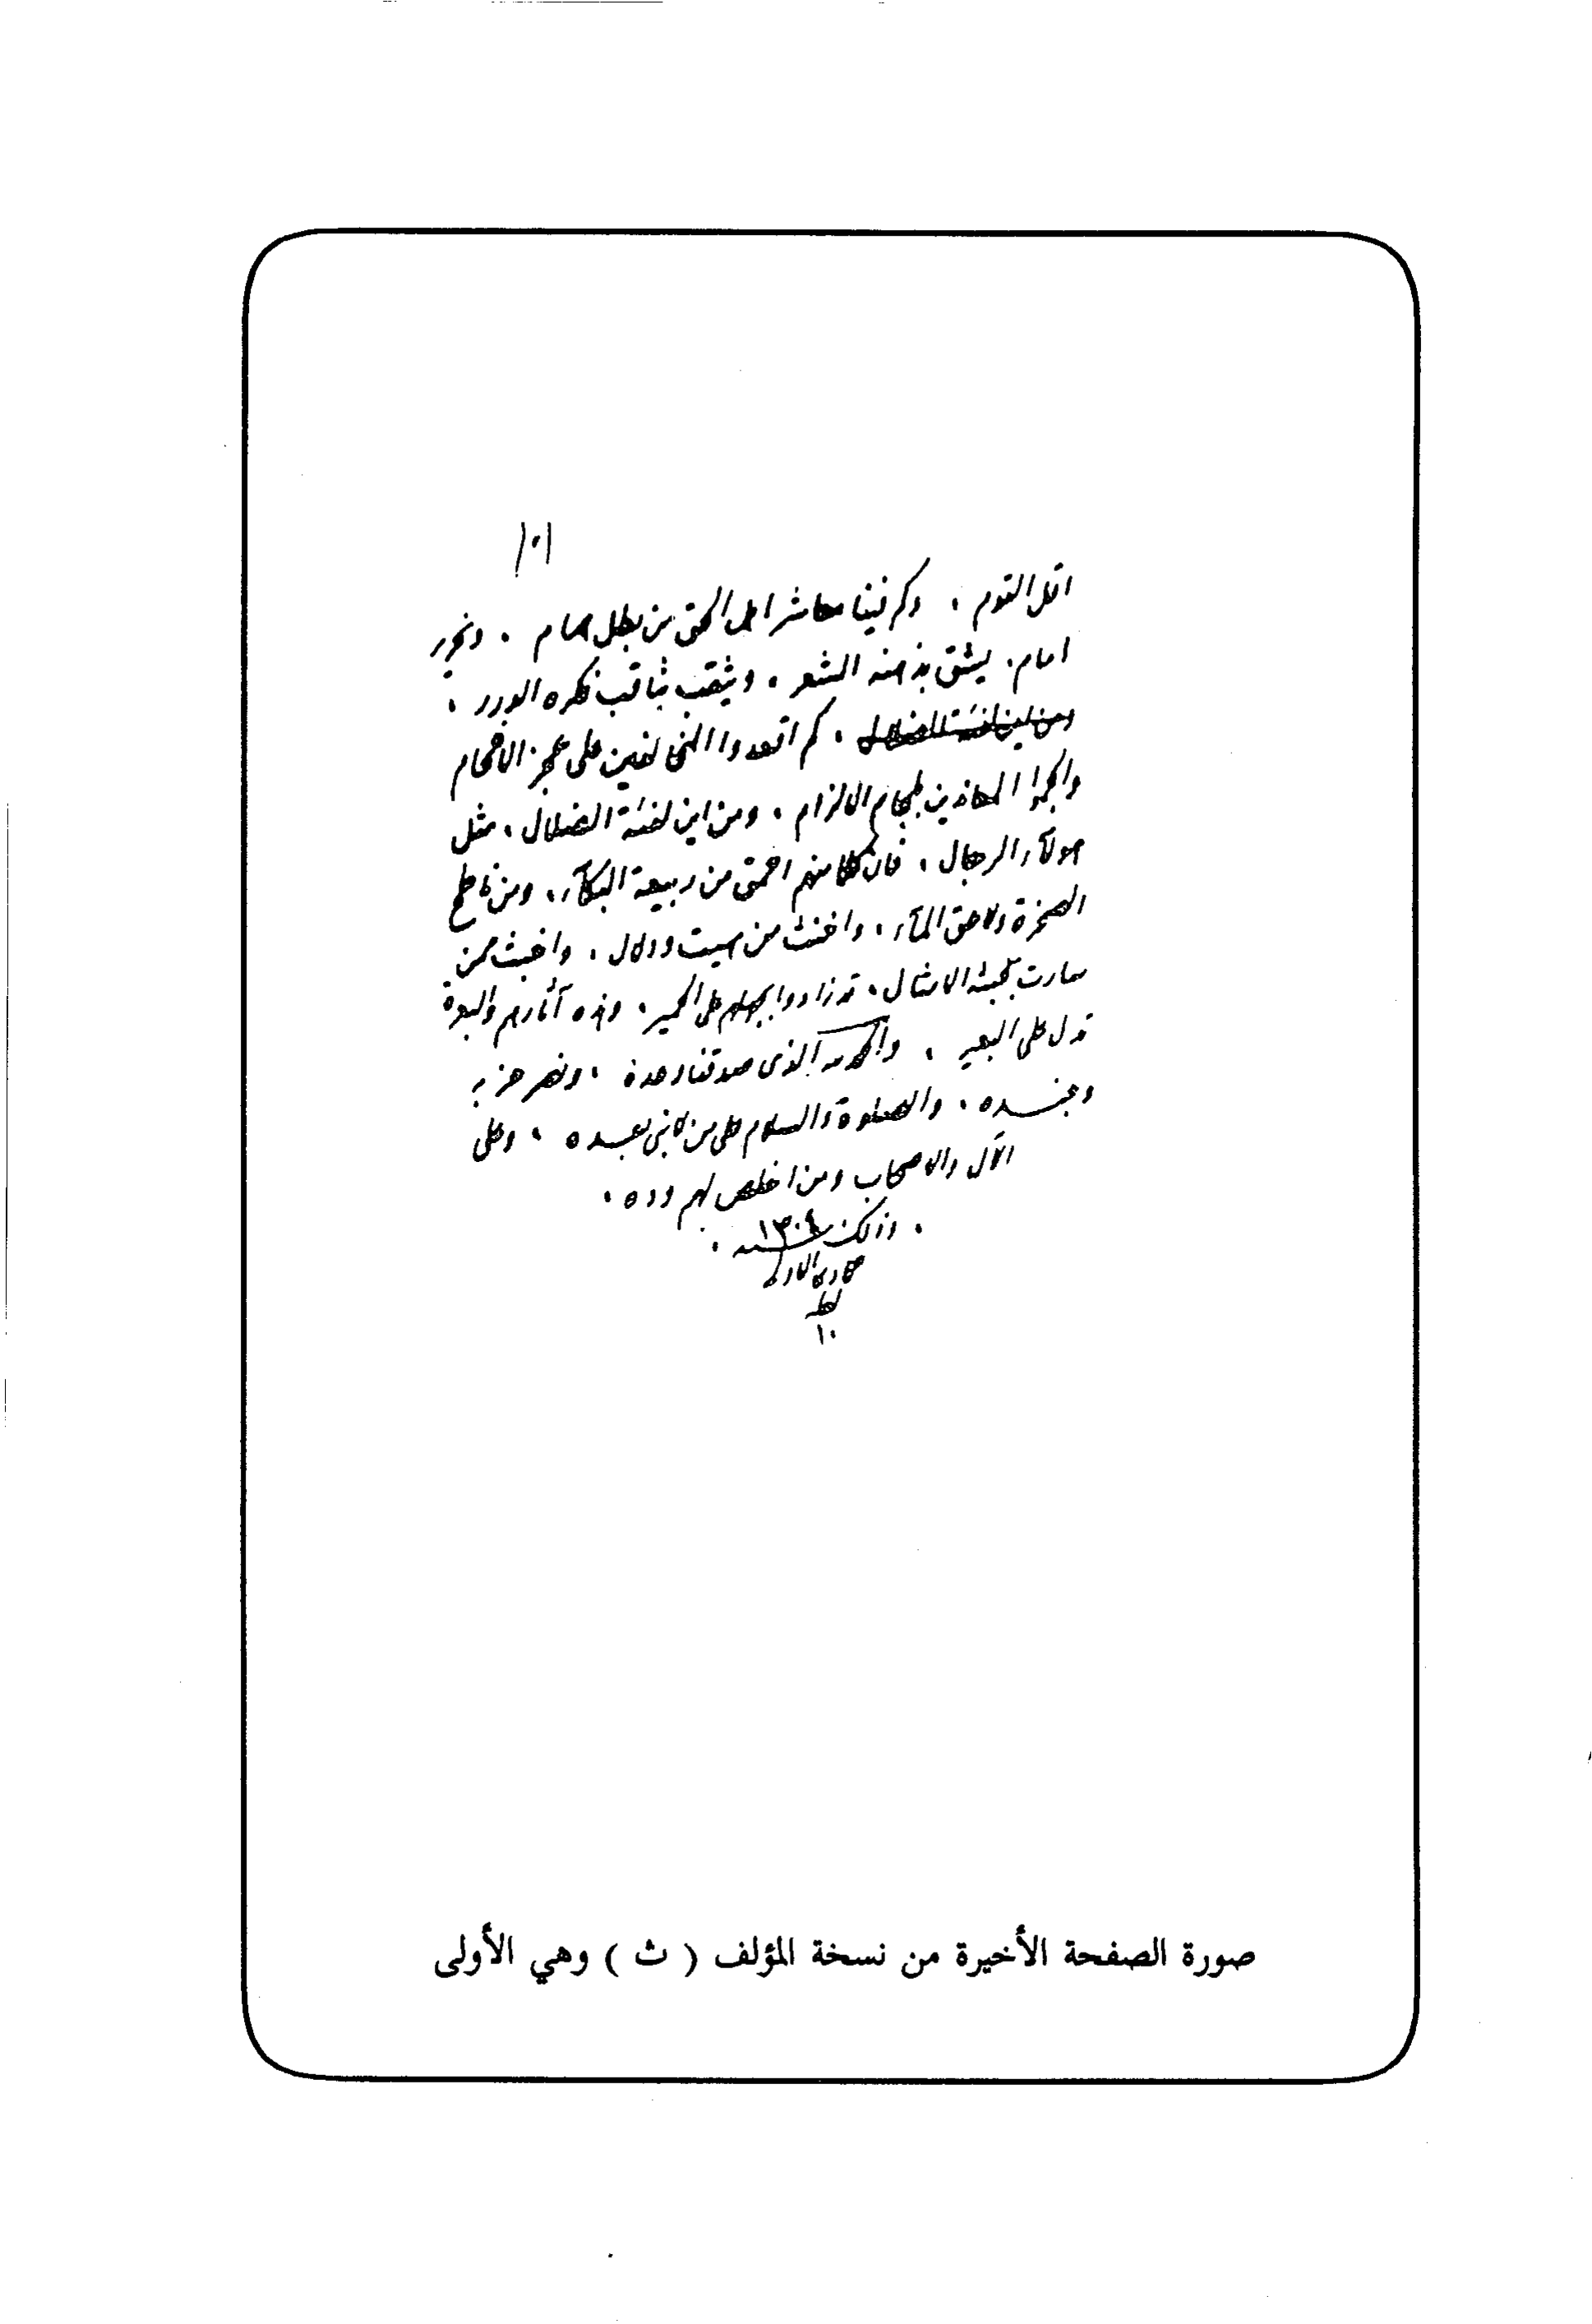 ١٠١
اقل القوم ، وكم فينا معاشر اهل الحق من بطل همام ، ونحرير
امام . يشق بذهنه الشعر ، ويثقب بثاقب فكره الدرر ،
ومن اين لفئة الضلال ، كم اقعدوا المخالفين على عجز الافحام
والجموا المعاندين بلجام الالزام ، ومن اين لفئة الضلال ، مثل
هولآء الرجال ، فان كلا منهم احمق من ربيعة البكآء ، ومن ناطح
الصخرة ولاعق المآء ، واخنث من هيت ودلال ، واخبث ممن
سارت بخبثه الامثال ، قد زادوا بجهلهم على الحمير ، وهذه آثارهم والبعرة
تدل على البعير ، والحمد لله الذى صدقنا وعده ، ونصر حزبه
وجنده ، والصلوة والسلام على من لا نبى بعده ، وعلى
الآل والاصحاب ومن اخلص لهم وده ،
، وذلك سنه ١٣٠٤ ،
صورة الصفحة الأخيرة من نسخة المؤلف ( ث ) وهي الأولى